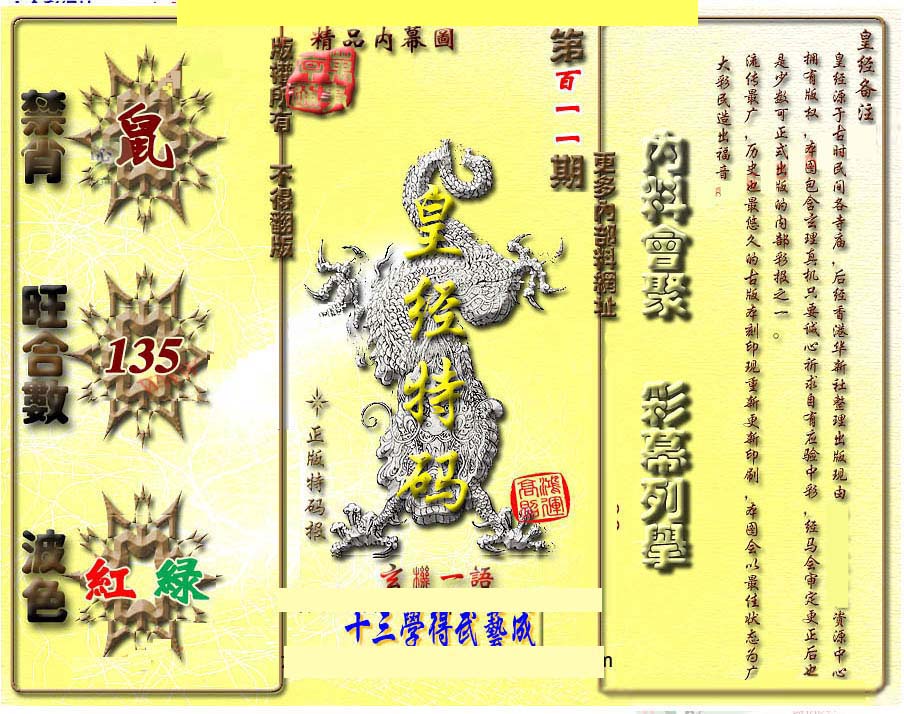 禁肖
鼠
旺合數
135
波色
紅 綠
版權所有 不得翻版
精品内幕圖
皇经特码
正版特码报
鴻運高照
玄機一語
十三學得武藝成
第百一一期
更多內部料網址
內料會聚 彩幕列舉
皇经备注
皇经源于古时民间各寺庙,后经香港华新社整理出版现由 资源中心
拥有版权,本图包含玄理真机只要诚心祈求自有应验中彩,经马会审定更正后也
是少数可正式出版的内部彩报之一。
流传最广,历史也最悠久的古版本刻印现重新更新印刷,本图会以最佳状态为广
大彩民造出福音